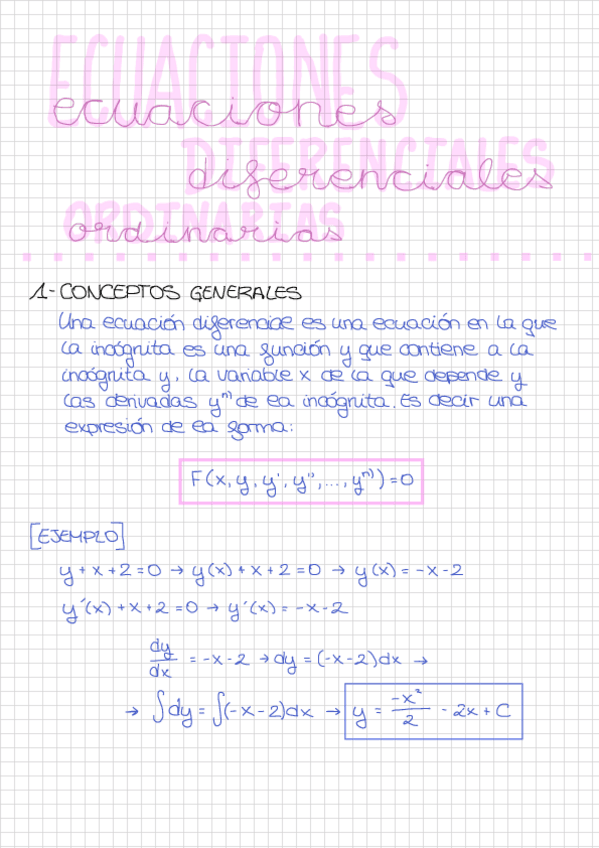 ECUACIONES
ecuaciones
DIFERENCIALES
diferenciales
ORDINARIAS
ordinarias
1- CONCEPTOS GENERALES
Una ecuación diferencial es una ecuación en la que
la incógnita es una función y que contiene a la
incógnita y, la variable x de la que depende y
las derivadas yⁿ⁾ de la incógnita. Es decir una
expresión de la forma:
F(x, y, y', y'', ..., yⁿ⁾) = 0
[EJEMPLO]
y + x + 2 = 0 → y(x) + x + 2 = 0 → y(x) = -x - 2
y'(x) + x + 2 = 0 → y'(x) = -x - 2
dy/dx = -x - 2 → dy = (-x - 2)dx →
→ ∫dy = ∫(-x - 2)dx → y = -x²/2 - 2x + C